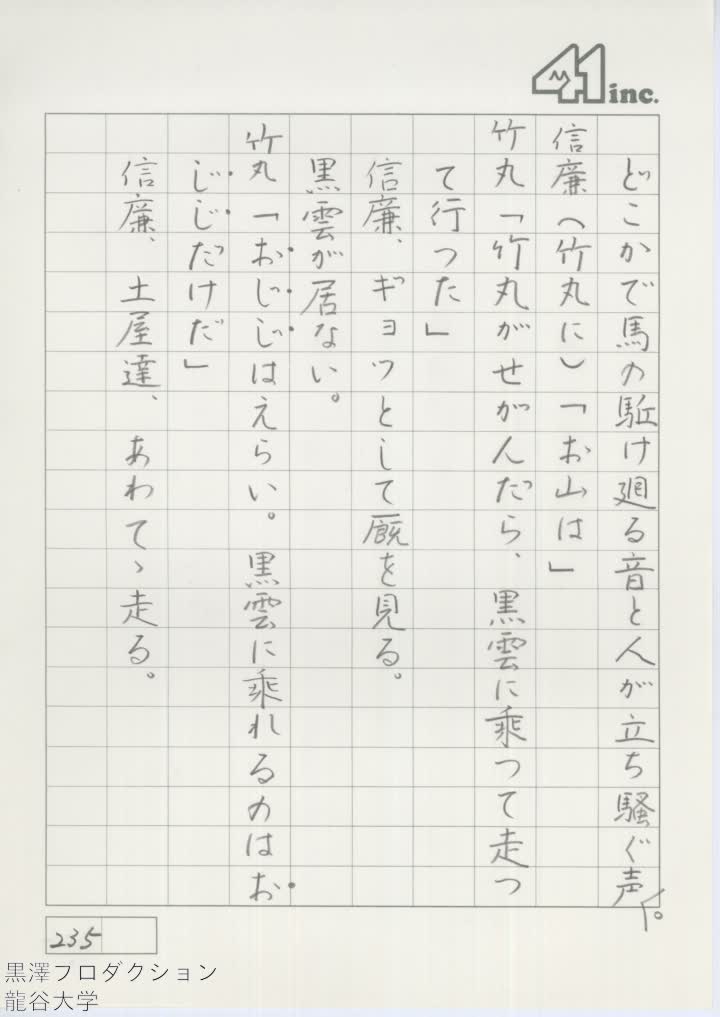 41 inc.
どこかで馬の駈け廻る音と人が立ち騒ぐ声。
信廉（竹丸に）「お山は」
竹丸「竹丸がせがんだら、黒雲に乗つて走つ
て行つた」
信廉、ギョッとして厩を見る。
黒雲が居ない。
竹丸「おじじはえらい。黒雲に乗れるのはお
じじだけだ」
信廉、土屋達、あわてゝ走る。
235
黒澤フロダクション
龍谷大学